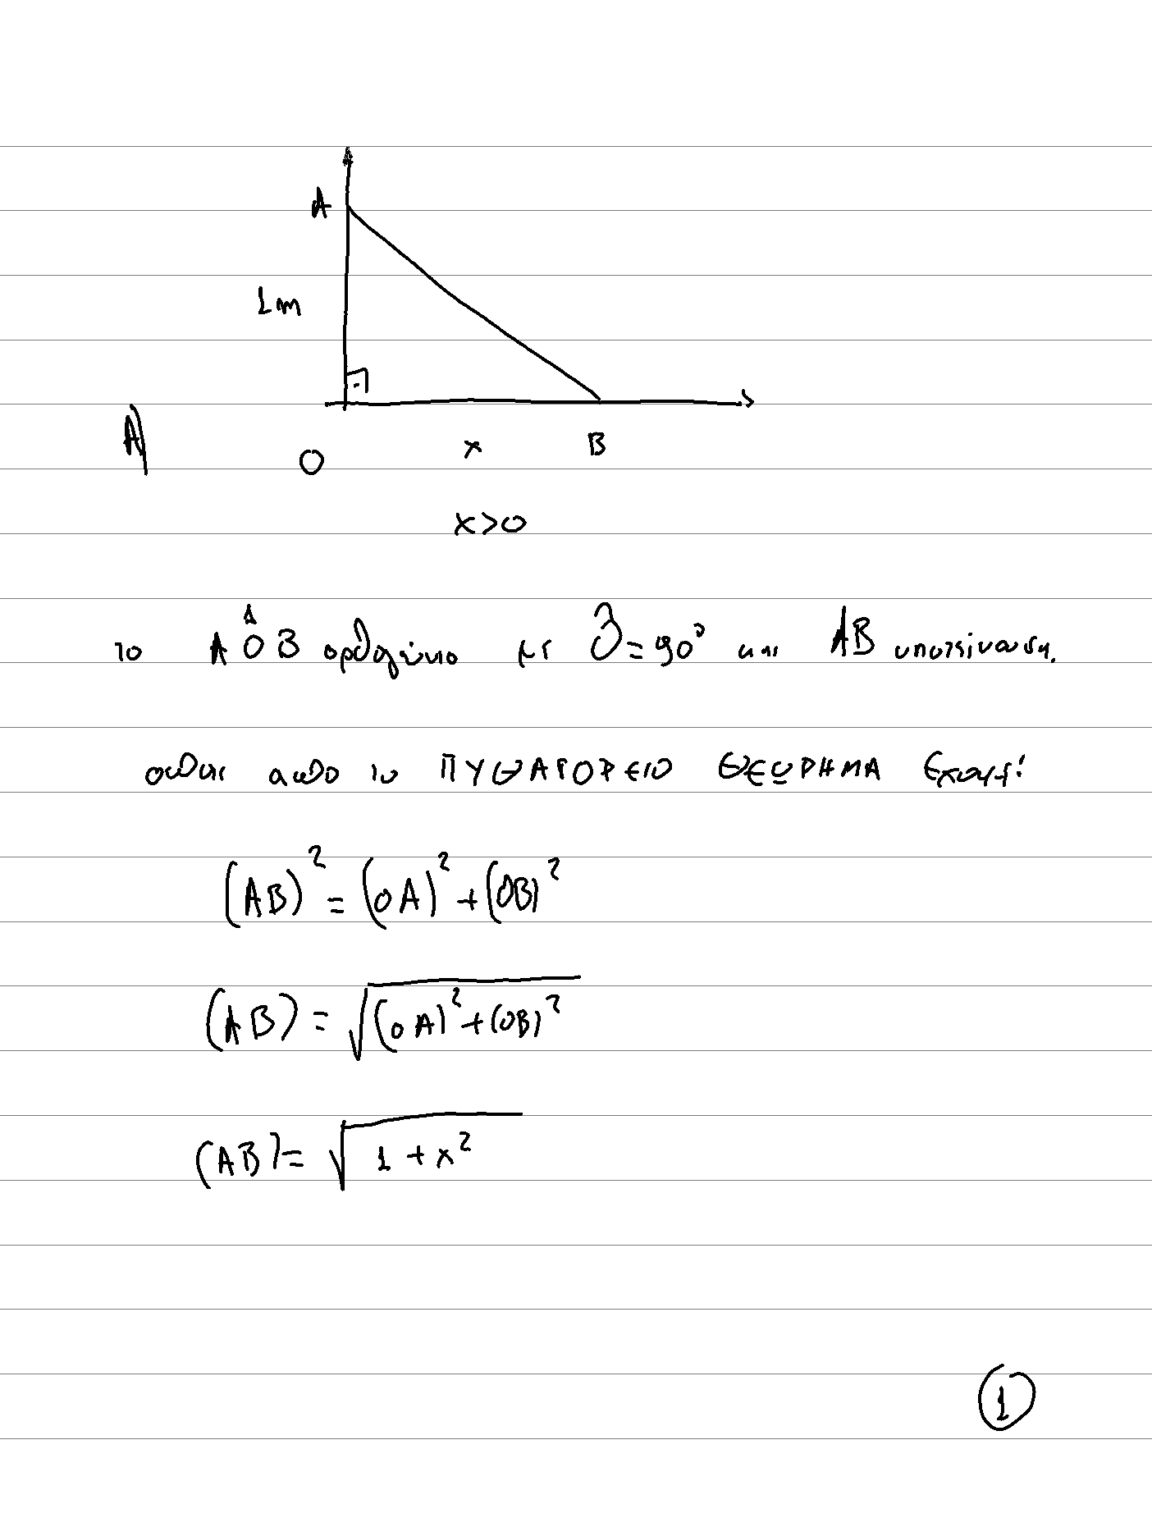 A
1m
A)
O x B
x>0
το AÔB ορθογώνιο με Ô=90° και AB υποτείνουσα.
οπότε από το ΠΥΘΑΓΟΡΕΙΟ ΘΕΩΡΗΜΑ έχουμε:
(AB)²=(OA)²+(OB)²
(AB)=√(OA)²+(OB)²
(AB)=√1+x²
1